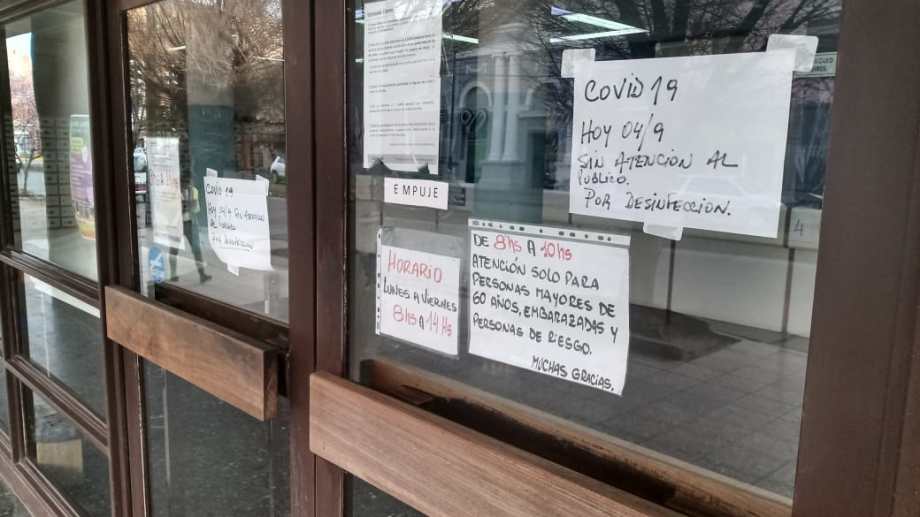 COVID 19
HOY 04/9
SIN ATENCION AL
PUBLICO.
POR DESINFECCION.
EMPUJE
HORARIO
LUNES A VIERNES
8hs A 14 Hs
DE 8hs A 10hs
ATENCIÓN SOLO PARA
PERSONAS MAYORES DE
60 AÑOS, EMBARAZADAS Y
PERSONAS DE RIESGO.
MUCHAS GRACIAS.
COVID 19
HOY 04/9 SIN ATENCION
AL PUBLICO
POR DESINFECCION
4